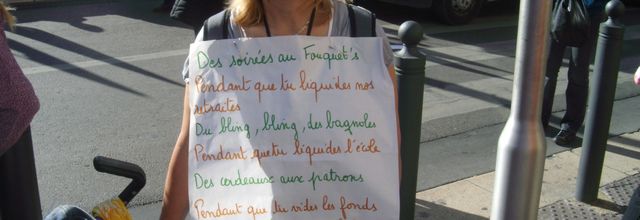 Des soirées au Fouquet's
Pendant que tu liquides nos
retraites
Du bling, bling, des bagnoles
Pendant que tu liquides l'école
Des cerdeaux aux patrons
Pendant que tu vides les fonds